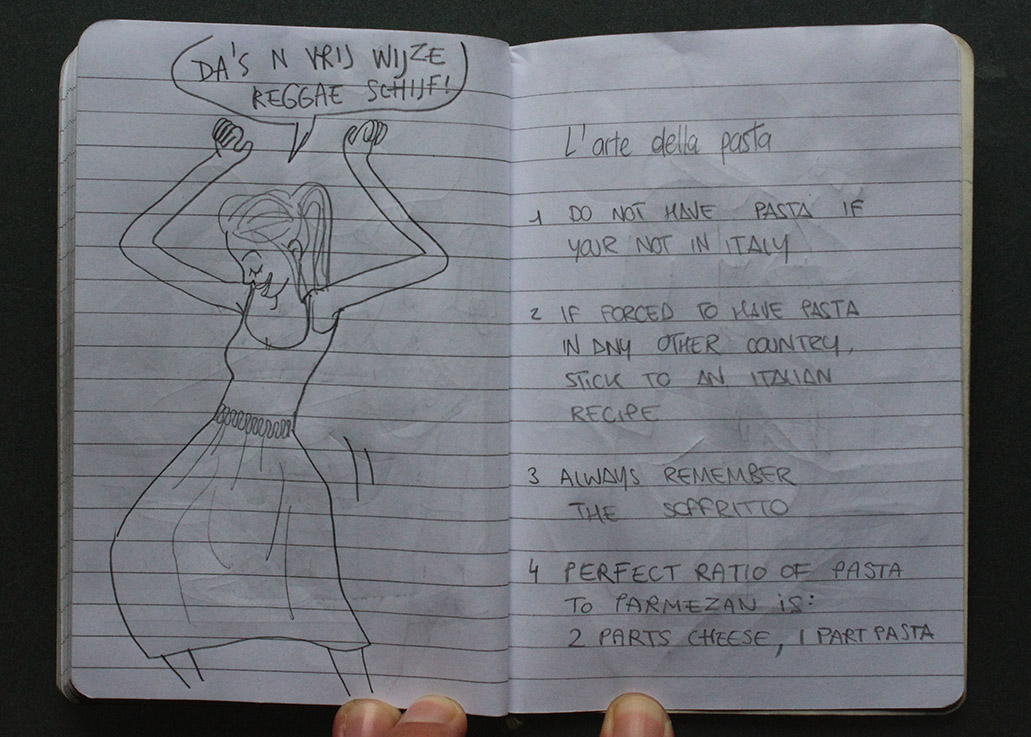 DA'S N VRIJ WIJZE
REGGAE SCHIJF!
L'arte della pasta
1 DO NOT HAVE PASTA IF
YOUR NOT IN ITALY
2 IF FORCED TO HAVE PASTA
IN ANY OTHER COUNTRY,
STICK TO AN ITALIAN
RECIPE
3 ALWAYS REMEMBER
THE SOFFRITTO
4 PERFECT RATIO OF PASTA
TO PARMEZAN IS:
2 PARTS CHEESE, 1 PART PASTA